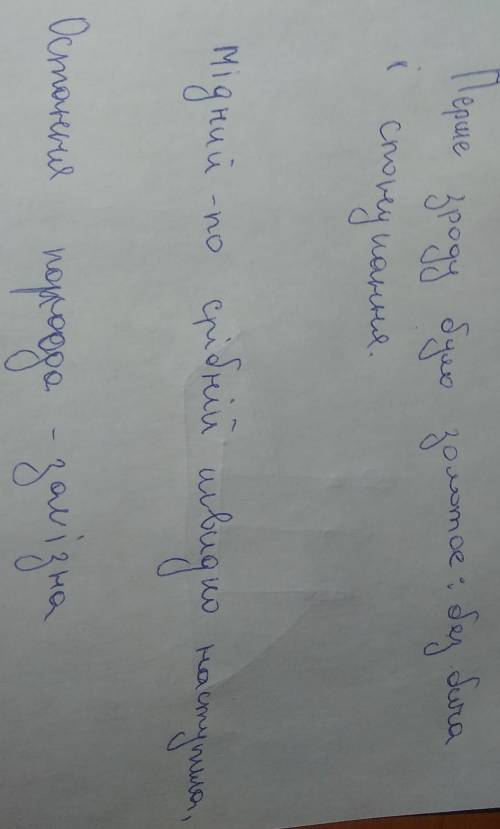 Перше зроду було золотое: без бича
і спонукання.
Мідний - по срібній швидко наступила,
Остання порода - залізна